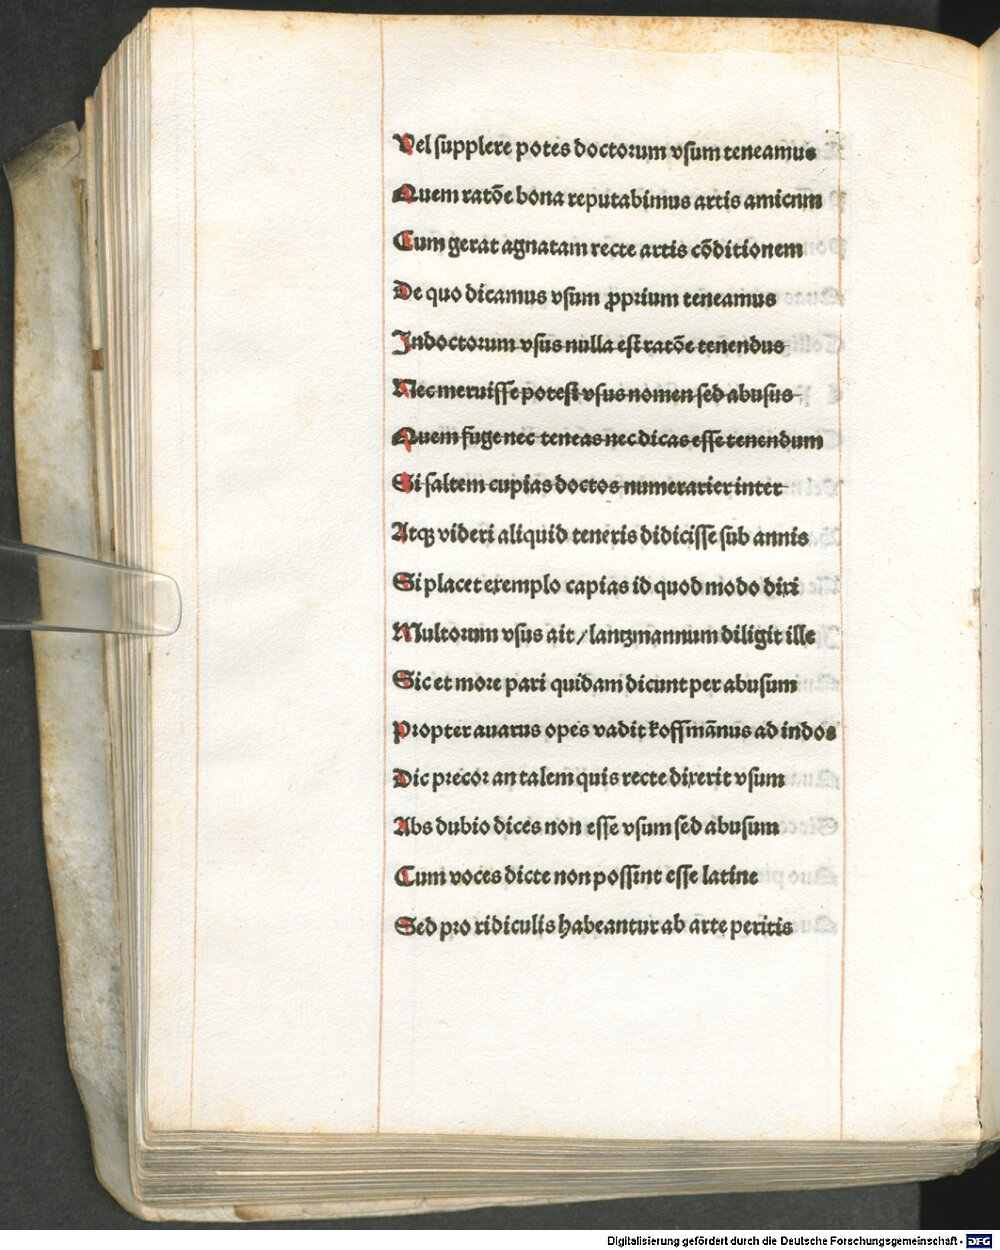 Vel supplere potes doctorum vsum teneamus
Quem ratōe bona reputabimus artis amicum
Cum gerat agnatam recte artis cōditionem
De quo dicamus vsum ꝓprium teneamus
Indoctorum vsus nulla est ratōe tenendus
Nec meruisse potest vsus nomen sed abusus
Quem fuge nec teneas nec dicas esse tenendum
Si saltem cupias doctos numerarier inter
Atqꝫ videri aliquid teneris didicisse sub annis
Si placet exemplo capias id quod modo dixi
Multorum vsus ait / lantzmannum diligit ille
Sic et more pari quidam dicunt per abusum
Propter auarus opes vadit koffmānus ad indos
Dic precor an talem quis recte dixerit vsum
Abs dubio dices non esse vsum sed abusum
Cum voces dicte non possint esse latine
Sed pro ridiculis habeantur ab arte peritis
Digitalisierung gefördert durch die Deutsche Forschungsgemeinschaft - DFG